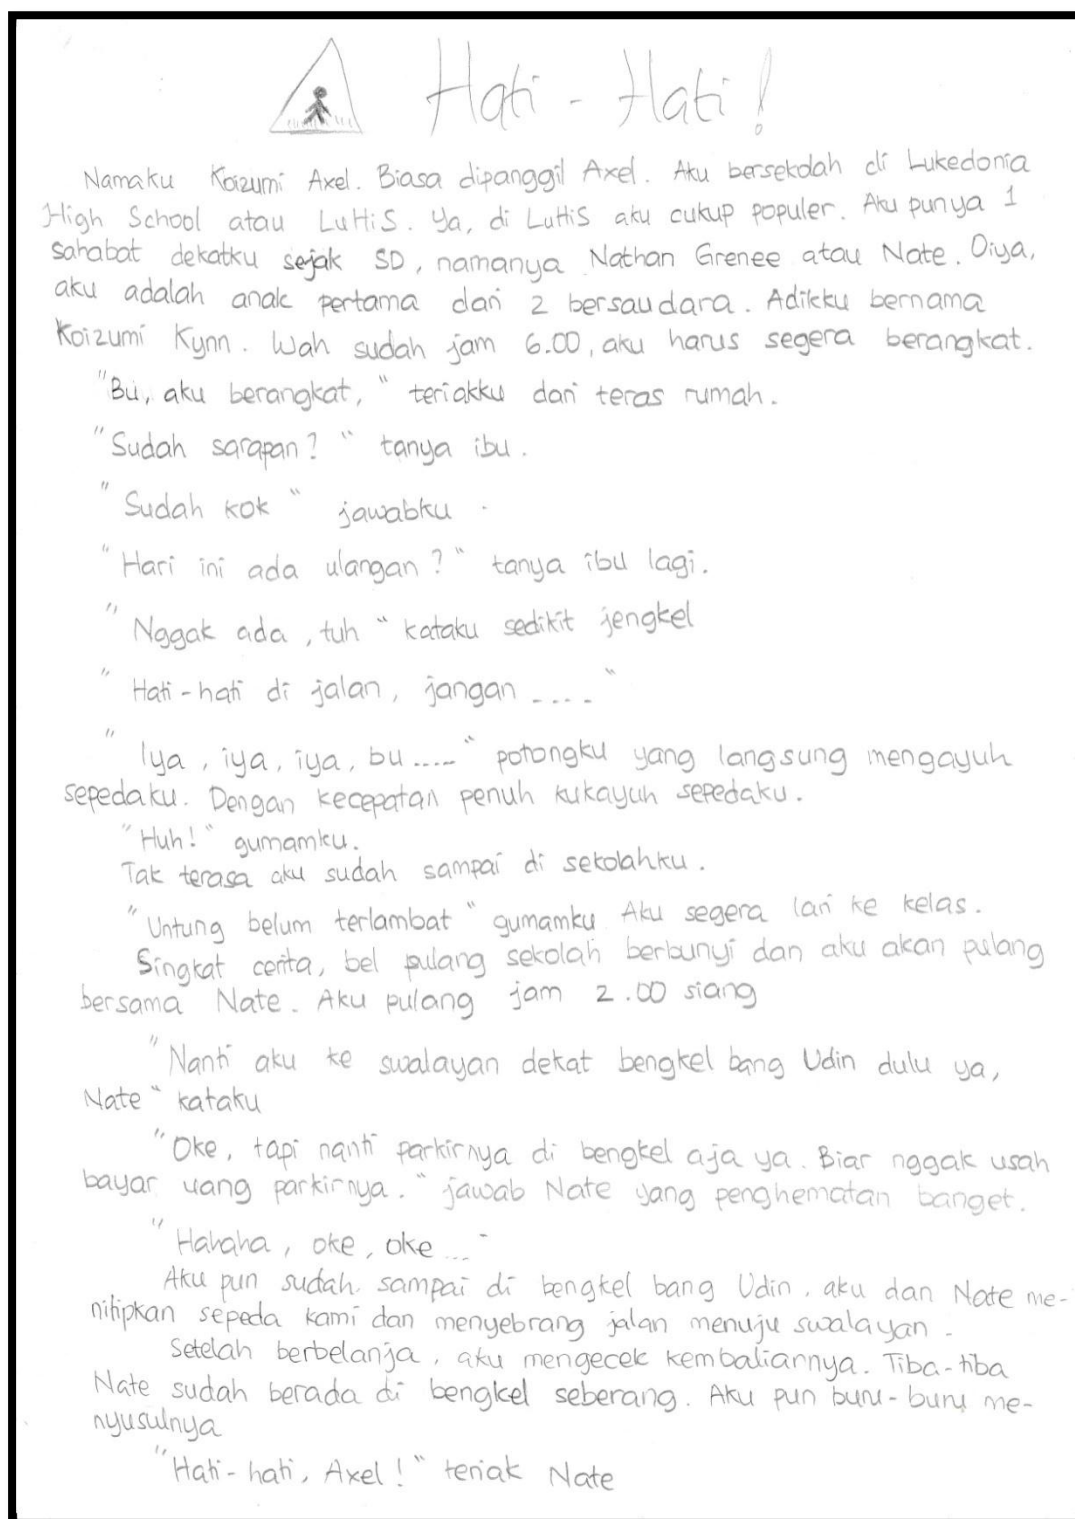 Hati - Hati!
Namaku Koizumi Axel. Biasa dipanggil Axel. Aku bersekolah di Lukedonia
High School atau LuHiS. Ya, di LuHiS aku cukup populer. Aku punya 1
sahabat dekatku sejak SD, namanya Nathan Grenee atau Nate. Oiya,
aku adalah anak pertama dari 2 bersaudara. Adikku bernama
Koizumi Kynn. Wah sudah jam 6.00, aku harus segera berangkat.
"Bu, aku berangkat," teriakku dari teras rumah.
"Sudah sarapan?" tanya ibu.
"Sudah kok" jawabku.
"Hari ini ada ulangan?" tanya ibu lagi.
"Nggak ada, tuh" kataku sedikit jengkel
"Hati-hati di jalan, jangan ...."
"Iya, iya, iya, bu ....." potongku yang langsung mengayuh
sepedaku. Dengan kecepatan penuh kukayuh sepedaku.
"Huh!" gumamku.
Tak terasa aku sudah sampai di sekolahku.
"Untung belum terlambat" gumamku Aku segera lari ke kelas.
Singkat cerita, bel pulang sekolah berbunyi dan aku akan pulang
bersama Nate. Aku pulang jam 2.00 siang
"Nanti aku ke swalayan dekat bengkel bang Udin dulu ya,
Nate" kataku
"Oke, tapi nanti parkirnya di bengkel aja ya. Biar nggak usah
bayar uang parkirnya." jawab Nate yang penghematan banget.
"Hahaha, oke, oke ..."
Aku pun sudah sampai di bengkel bang Udin, aku dan Nate me-
nitipkan sepeda kami dan menyebrang jalan menuju swalayan.
Setelah berbelanja, aku mengecek kembaliannya. Tiba-tiba
Nate sudah berada di bengkel seberang. Aku pun buru-buru me-
nyusulnya
"Hati-hati, Axel!" teriak Nate